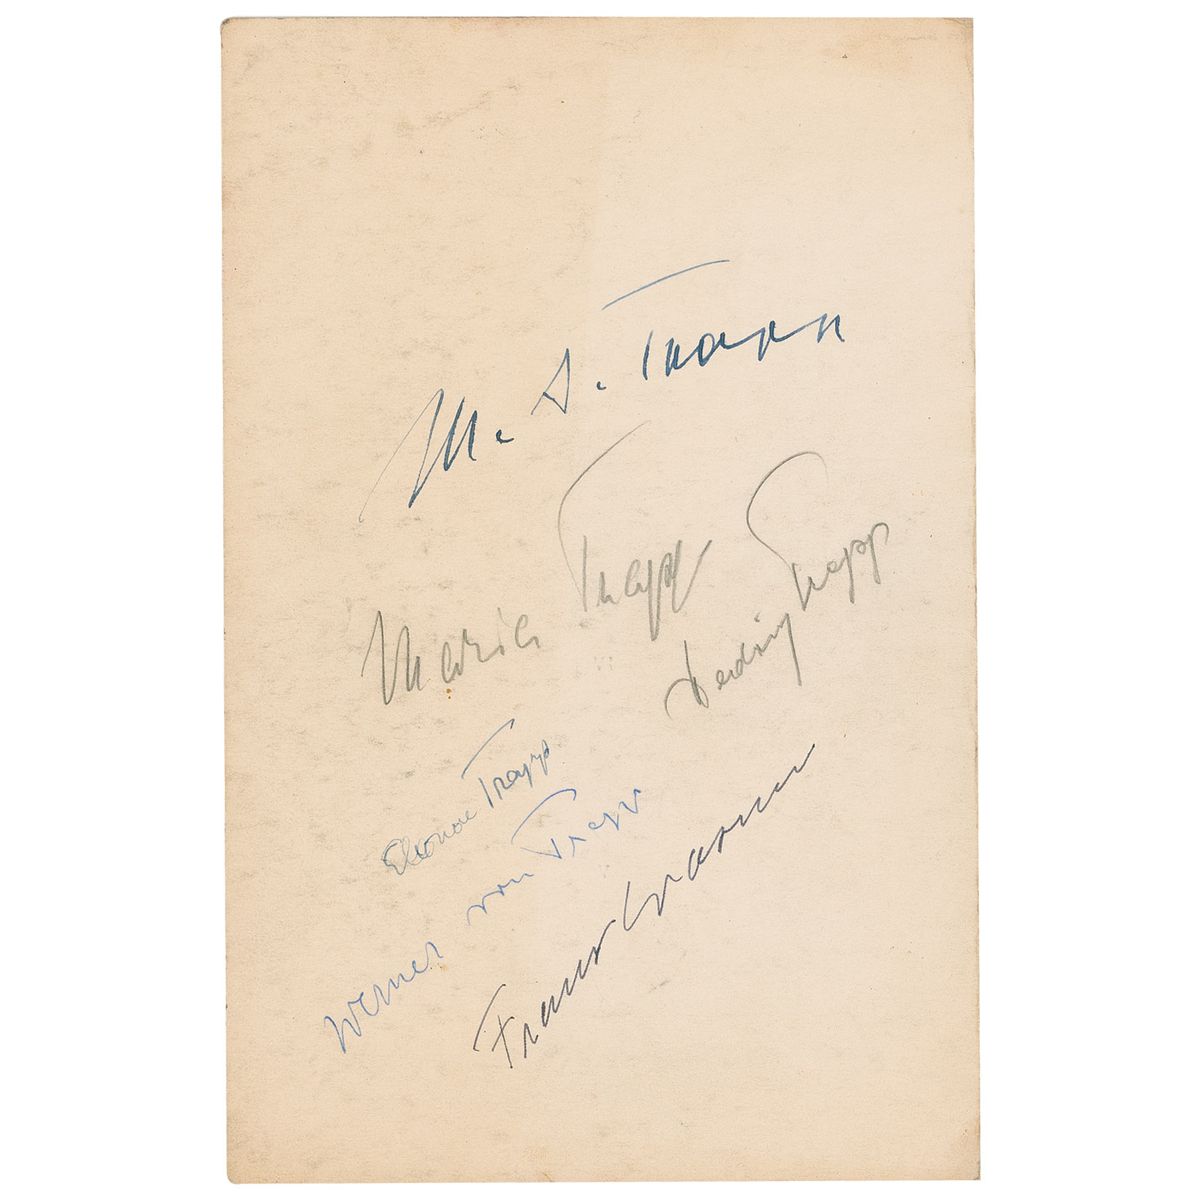 M. A. Trapp
Maria Trapp
Hedwig Trapp
Eleonore Trapp
Werner von Trapp
Franz Wasner